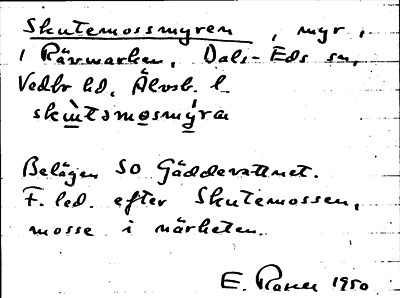 Skutemossmyren, myr,
i Rävmarken, Dals-Eds sn,
Vedbo hd, Älvsb. l.
skùtəmosmýra
Belägen SO Gäddevattnet.
F. led. efter Skutemossen,
mosse i närheten.
E. 1950